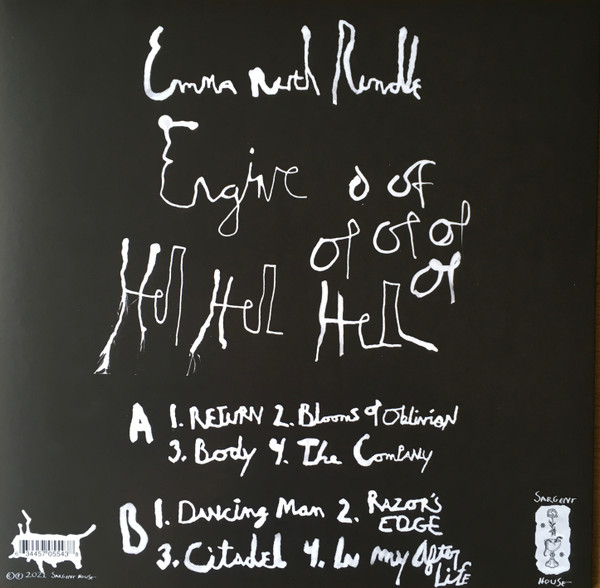 Emma Ruth Rundle
Engine o of
of of of
of
Hell Hell Hell
A 1. RETURN 2. Blooms of Oblivion
3. Body 4. The Company
B 1. Dancing Man 2. RAZOR'S
EDGE
3. Citadel 4. In my After
Life
6 34457 05543 8
©℗ 2021 SARGENT HOUSE
SARGENT
HOUSE